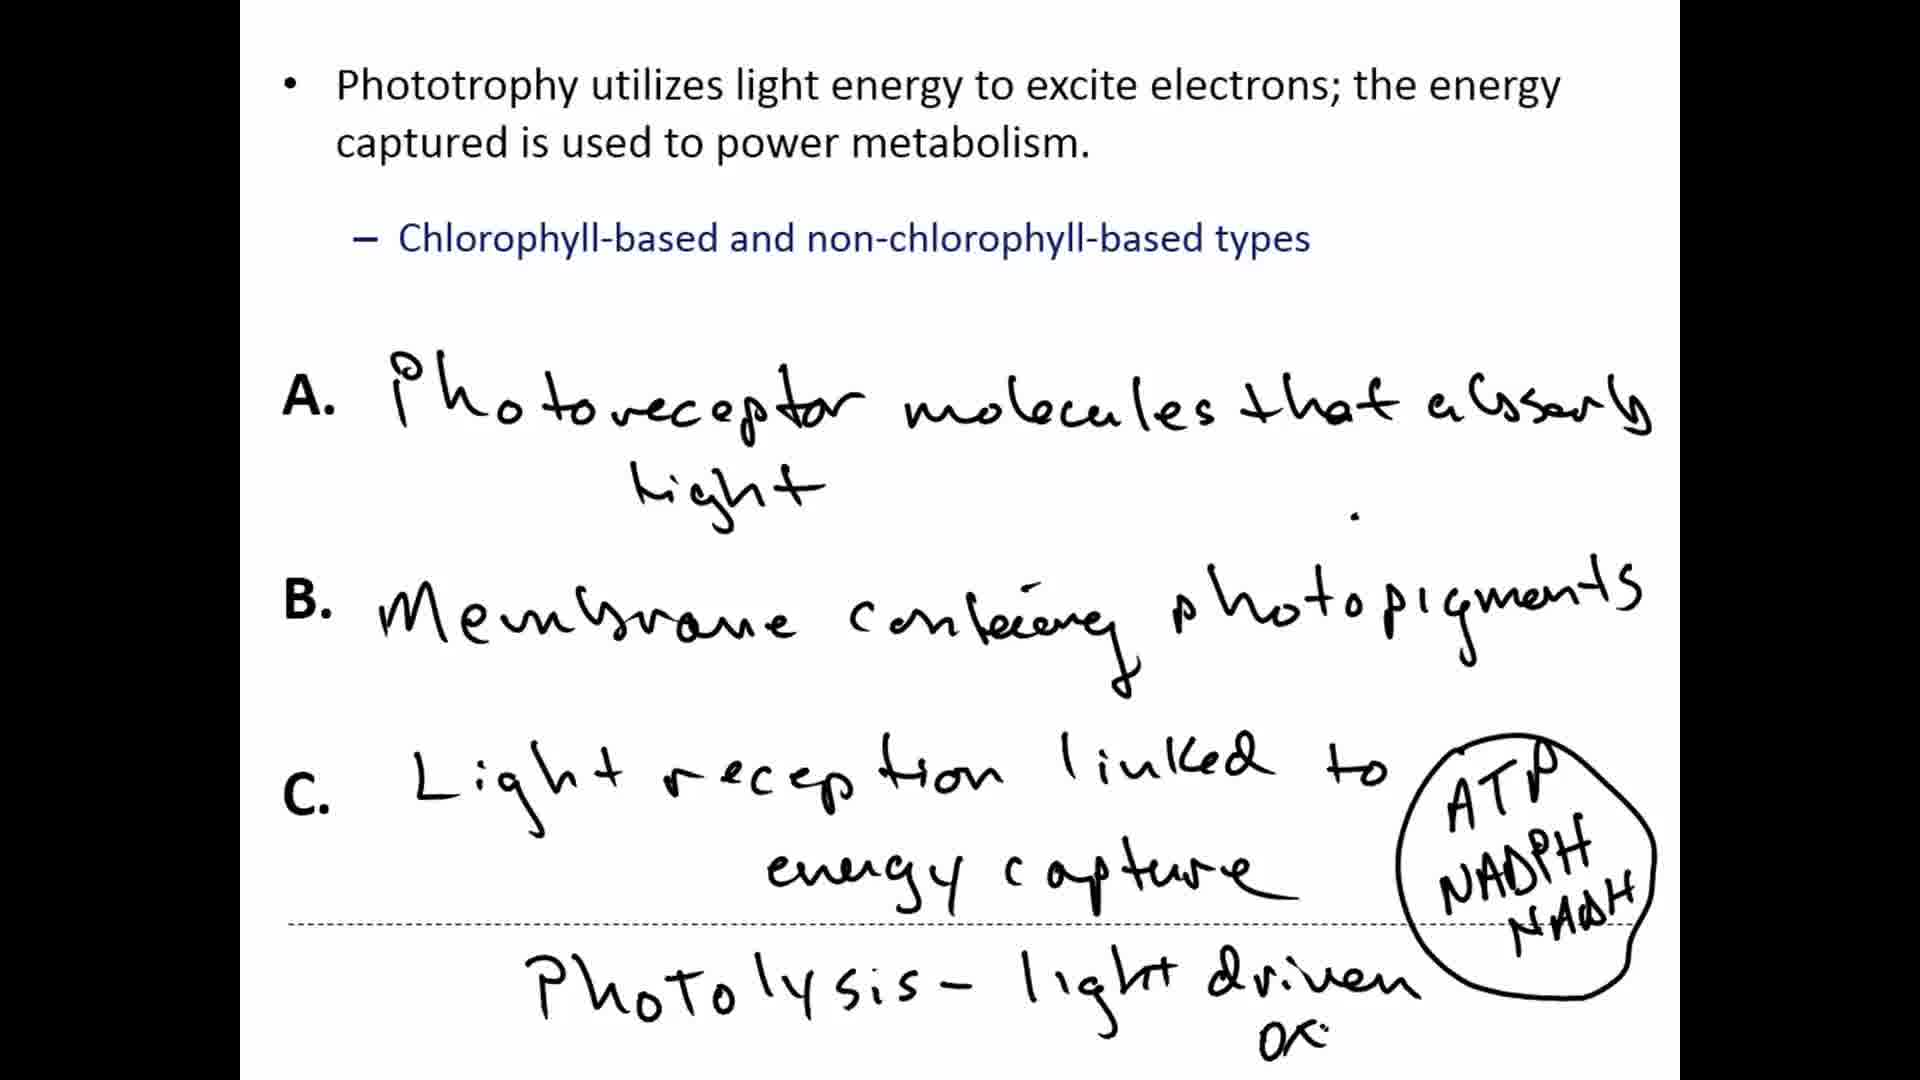 • Phototrophy utilizes light energy to excite electrons; the energy
captured is used to power metabolism.
– Chlorophyll-based and non-chlorophyll-based types
A. Photoreceptor molecules that absorb
light
B. Membrane containing photopigments
C. Light reception linked to
energy capture
ATP
NADPH
NADH
Photolysis – light driven
ox